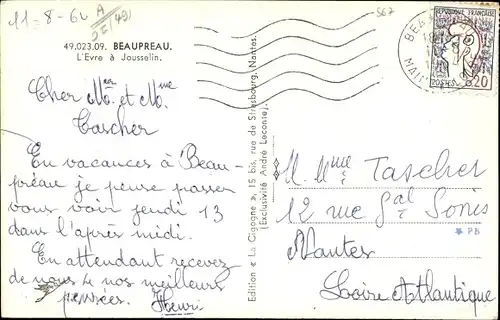 11-8-60 A
567
49.023.09. BEAUPREAU.
L'Evre à Jousselin.
Cher Mr et Mme
Tascher
En vacances à Beau-
préau je pense passer
vous voir jeudi 13
dans l'après midi.
En attendant recevez
de nous 4 nos meilleurs
pensées. Henri
Edition « La Cigogne », 15 bis, rue de Strasbourg, Nantes.
(Exclusivité André Leconte)
REPUBLIQUE FRANÇAISE
POSTES 0,20
BEAU
MAI
M. Mme Tascher
12 rue Gal Sonis
* PB
Nantes
Loire Atlantique